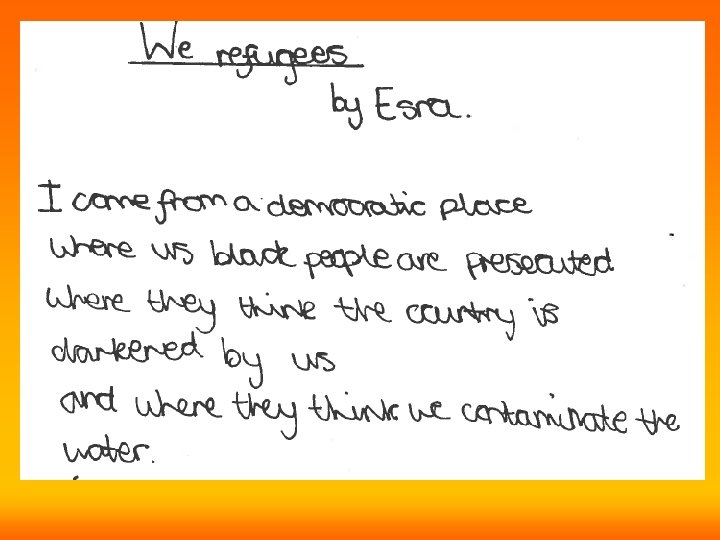 We refugees
by Esra.
I come from a democratic place
where us black people are presecuted
where they think the country is
darkened by us
and where they think we contaminate the
water.